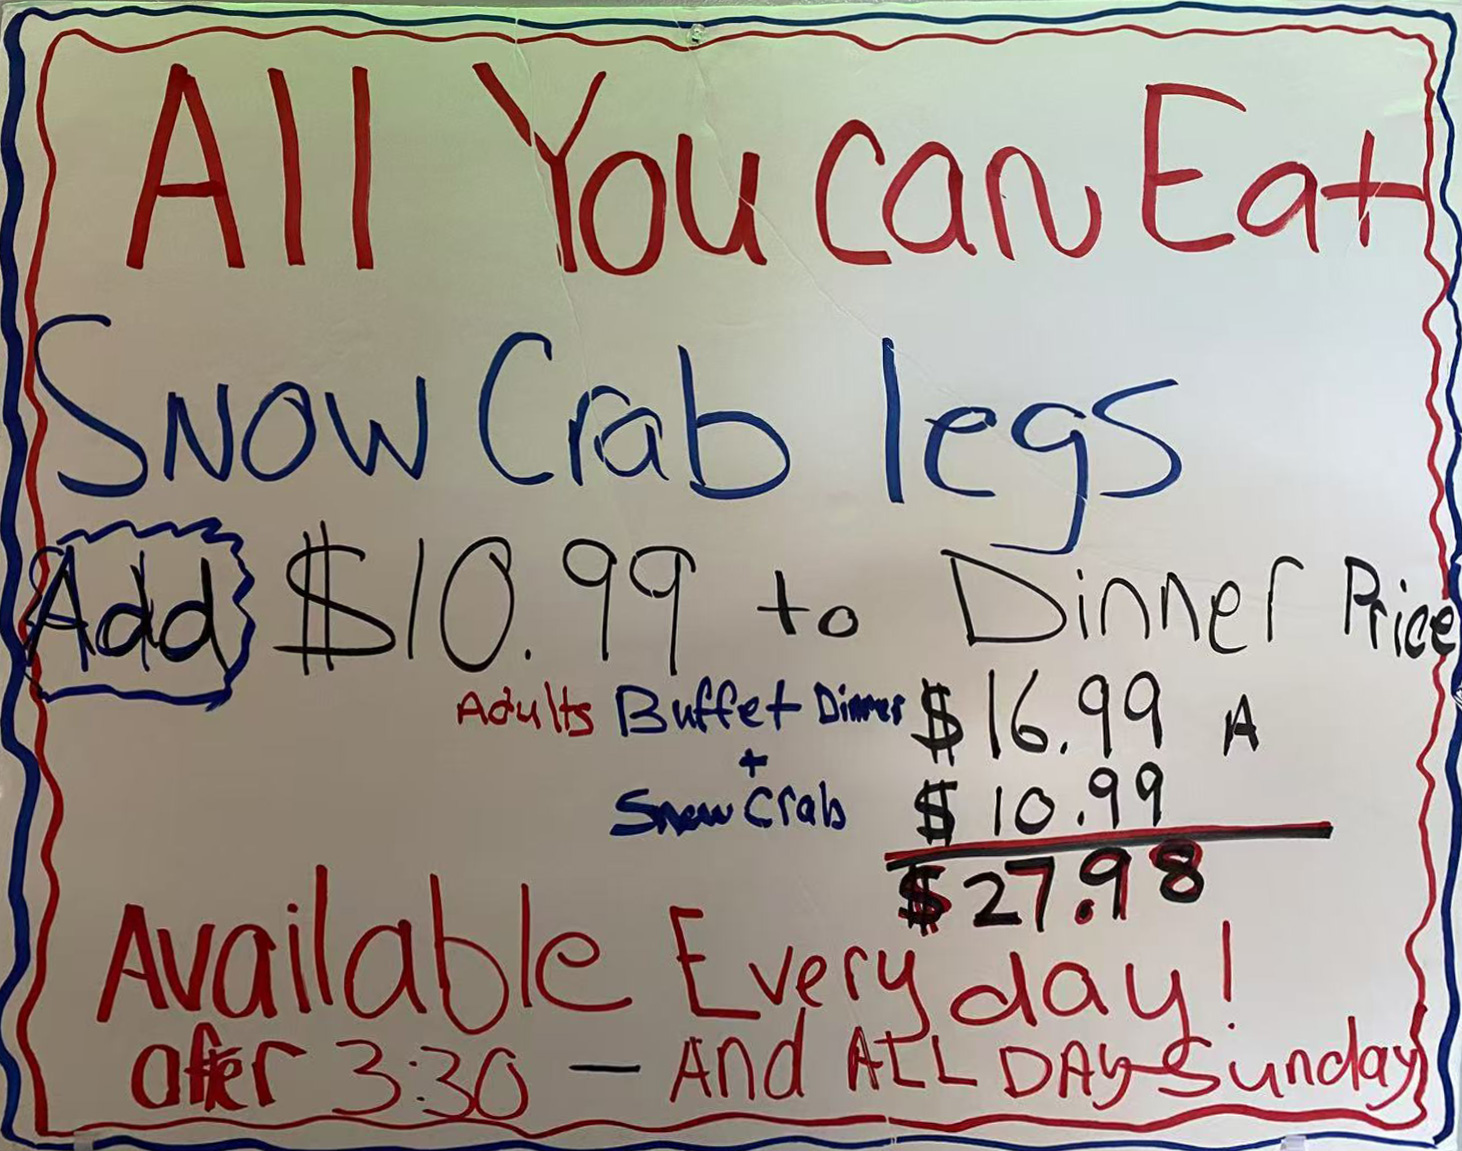 All You can Eat
Snow Crab legs
Add $10.99 to Dinner Price
Adults Buffet Dinner $16.99 A
+
Snow Crab $10.99
$27.98
Available Every day!
after 3:30 — And ALL DAY Sunday